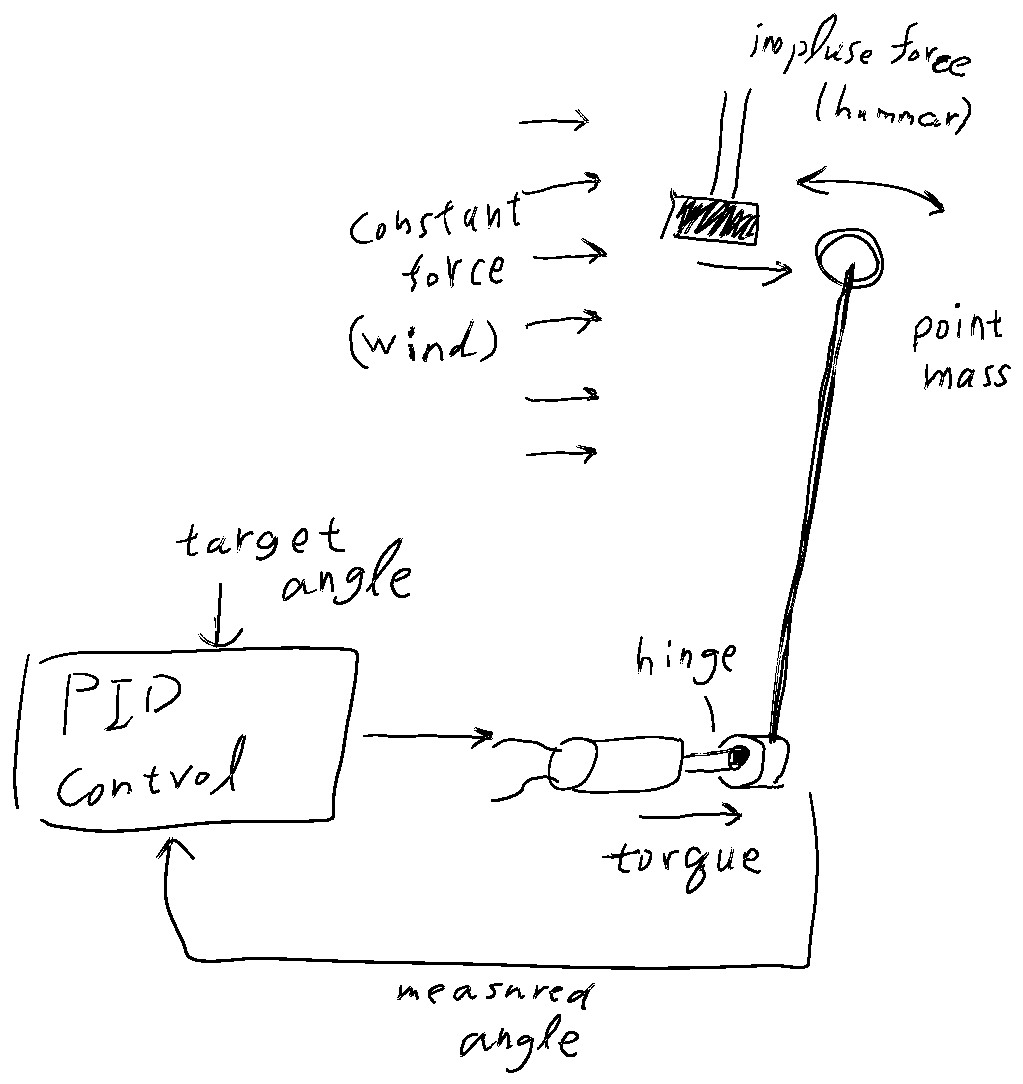 impluse force
(hammar)
constant
force
(wind)
point
mass
target
angle
PID
control
hinge
torque
measured
angle